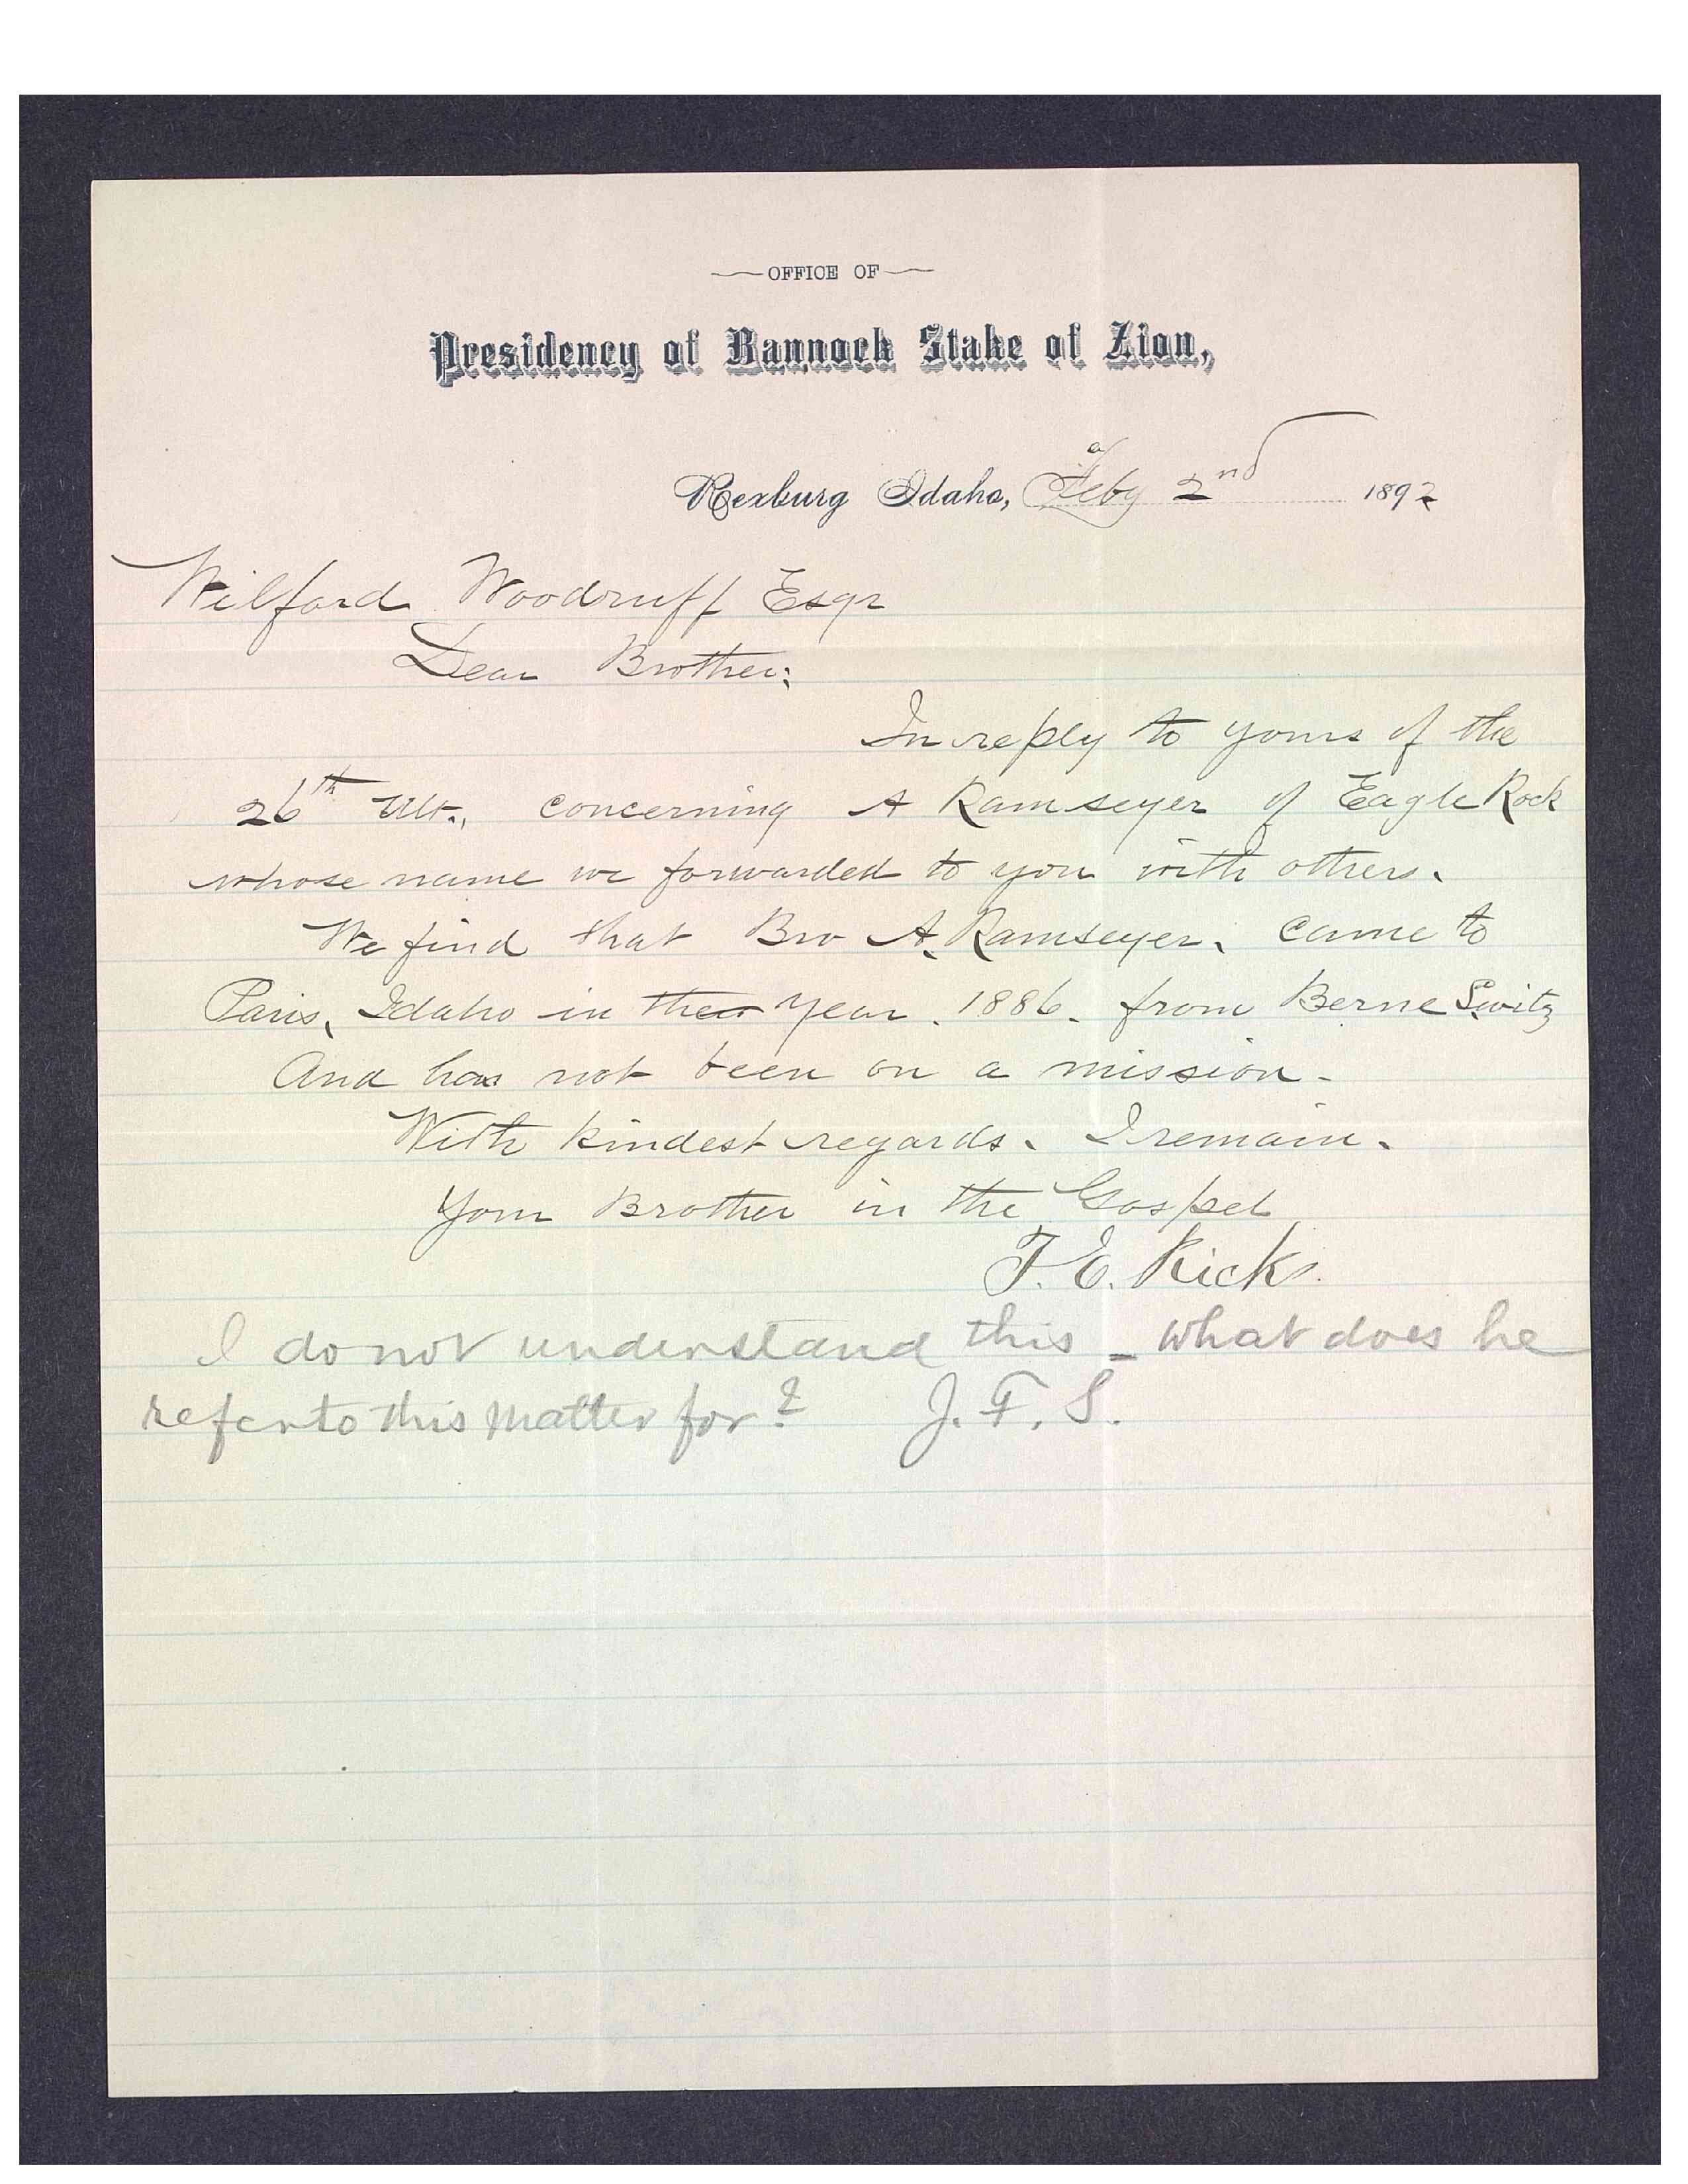 OFFICE OF
Presidency of Bannock Stake of Zion,
Rexburg Idaho, Feby 2nd 1892
Wilford Woodruff Esqr
Dear Brother;
In reply to yours of the
26th Ult., concerning A Ramseyer of Eagle Rock
whose name we forwarded to you with others.
We find that Bro A. Ramseyer. came to
Paris, Idaho in the year. 1886. from Berne Switz
And has not been on a mission.
With kindest regards. I remain.
Your Brother in the Gospel
T. E. Ricks.
I do not understand this – what does he
refer to this matter for? J. F. S.